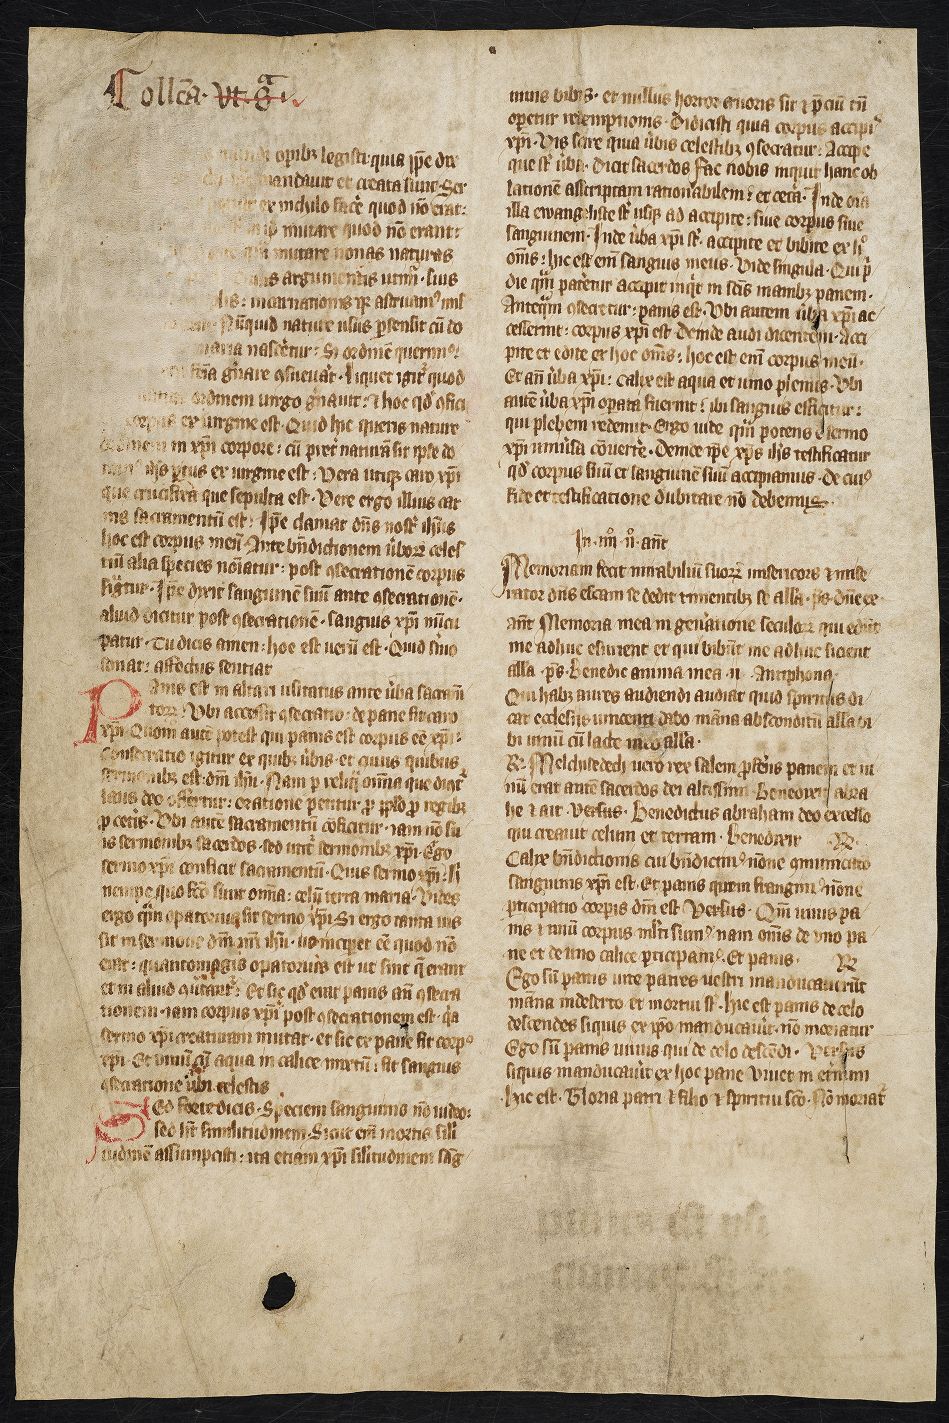 Collcā. vt. sᵃ.
mundi opibꝫ legisti: quia ip̄e dix
mandauit et creata sunt. Ser
ex nichilo facͤe quod nō erat:
mutare quod nō erant:
mutare nouas naturas
argumentis utim᷑. suis
incarnationis qꝫ astruam᷑
Nūquid nature usus p̄sensit cū do
maria nascͤetur. Si ordinē querim᷑:
gn̄are ꝯsueuāt. Liquet igit᷑ quod
ordinem uirgo gn̄auit. ⁊ hoc qd̓ ꝯfici
corpus ex uirgine est. Quid hic queris nature
in xp̄i corpore: cū pret̓ naturā sit ip̄se do
ih̄s ꝑtus ex uirgine est. Vera utiqꝫ caro xp̄i
que crucifixa que sepulta est. Vere ergo illius car
nis sacramentū est. Ip̄e clamat dn̄s nost᷑ ih̄us
hoc est corpus meū. Ante bn̄dictionem ūboꝝ celes
tiū alia species noīatur: post ꝯsecrationē corpus
sig̓tur. Ip̄e dixit sanguinē suū ante ꝯsecrationē.
aliud dicitur post ꝯsecrationē. sanguis xp̄i nūcu
patur. Tu dicis amen: hoc est uerū est. Quid s̓mo
sonat: affectus sentiat
Panis est in altari usitatus ante ūba sacram̄
toꝝ. Vbi accessit ꝯsecratio: de pane fit caro
xp̄i. Quom̄ autē potest qui panis est corpus eē xp̄i:
Consecratio igitur ex quibꝫ ūbis. et quius quibus
sermonibꝫ est. dn̄i ih̄u. Nam ꝑ reliq̄ om̄ia que dnt̄
laus deo offertur: oratione petitur ꝓ ipp̄lo ꝓ regibꝫ
ꝓ cetis. Vbi autē sacramentū ꝯficitur. iam nō su
is sermonibꝫ sacerdos. sed utit᷑ sermonibꝫ xp̄i. Ergo
sermo xp̄i conficit sacramentū. Quis sermo xp̄i:
nempe quo fcā sunt om̄ia: celū terra maria. Vides
ergo q̄m opatorius sit sermo xp̄i. Si ergo tanta uis
sit in sermone dn̄i nr̄i ih̄u. ut inciperet eē quod nō
erat: quantomagis opatorius est ut sint q̄ erant
et in aliud ꝯmutant᷑: Et sic qd̓ erat panis an̄ ꝯsecra
tionem. iam corpus xp̄i post ꝯsecrationem est. q̓a
sermo xp̄i creaturam mutat. et sic ex pane fit corp᷒
xp̄i. Et uinū cū aqua in calice mixtū: fit sanguis
ꝯsecratione ūbi celestis
Sed forte dicis. Speciem sanguinis nō uideo:
sed ht̄ similitudinem. Sicut em̄ mortis sili
tudinē assumpsisti: ita etiam xp̄i silitudinem sāg
inis bibis. et nullus horror cruoris sit ⁊ p̄ciū tn̄
operetur redemptionis. Didicisti quia corpus accipis
xp̄i. Vis scire quia ūbis celestibꝫ ꝯsecratur: Accipe
que st̄ ūba. Dicit sacerdos fac nobis inquit hanc ob
lationē asscriptam rationabilem: et ceta. Inde oīa
illa ewangeliste st̄ usqꝫ ad accipite: siue corpus siue
sanguinem. Inde ūba xp̄i st̄. accipite et bibite ex h᷒
om̄s: hic est em̄ sanguis meus. Vide singula. Qui p̄
die q̄m pateretur accipit inq̓t in sc̄is manibꝫ panem.
Anteq̄m ꝯsecretur: panis est. Vbi autem ūba xp̄i ac
cesserint: corpus xp̄i est. Deinde audi dicentem. Acci
pite et edite ex hoc om̄s: hoc est em̄ corpus meū.
Et an̄ ūba xp̄i: calix est aqua et uino plenus. Vbi
autē ūba xp̄i opata fuerint: ibi sanguis efficitur:
qui plebem redemit. Ergo uide q̄m potens ē sermo
xp̄i uniūsa cōuertͤe. Deinde ip̄e xp̄s ih̄s testificatur
qd̓ corpus suū et sanguinē suū accipiamus. de cui᷒
fide et testificatione dubitare nō debemus.
In. iii̊. n̊. an̄t
Memoriam fecit mirabiliū suoꝝ misericors ⁊ mise
rator dn̄s escam se dedit timentibꝫ se alla. ps̄. Dn̄e ex
an̄t Memoria mea in gen̄atione seculoꝝ qui edūt
me adhuc esurient et qui bibūt me adhuc sicient
alla. ps̄. Benedic anima mea. ii. Antiphona
Qui habꝫ aures audiendi audiat quid spiritus di
cat ecclesiis uincenti dabo māna absconditū alla bi
bi uinū cū lacte meo alla.
R̄ Melchisedech uero rex salem ꝓferēs panem et ui
nū erat autē sacerdos dei altissimi. Benedixit abra
he ⁊ ait. Versus. Benedictus abraham deo excelso
qui creauit celum et terram. Benedixit R̄
Calix bn̄dictionis cui bn̄dicim᷒ nōne ꝯmunicatō
sanguinis xp̄i est. Et panis quem frangim᷒ nōne
ꝑticipatio corpis dn̄i est Versus. Qm̄ unus pa
nis ⁊ unū corpus ml̓ti sum᷒ nam om̄s de vno pa
ne et de uno calice ꝑticipam᷒. Et panis. R̄
Ego sū panis uite patres uestri manducauerūt
māna in deserto et mortui st̄. hic est panis de celo
descendēs siquis ex ip̄o manducaūit. nō moriatur
Ego sū panis uiuus qui de celo descēdi. Versus
siquis manducaūit ex hoc pane viuet in et̓num
hic est. Gloria patri ⁊ filio ⁊ spiritui scō. Nō moriat᷑